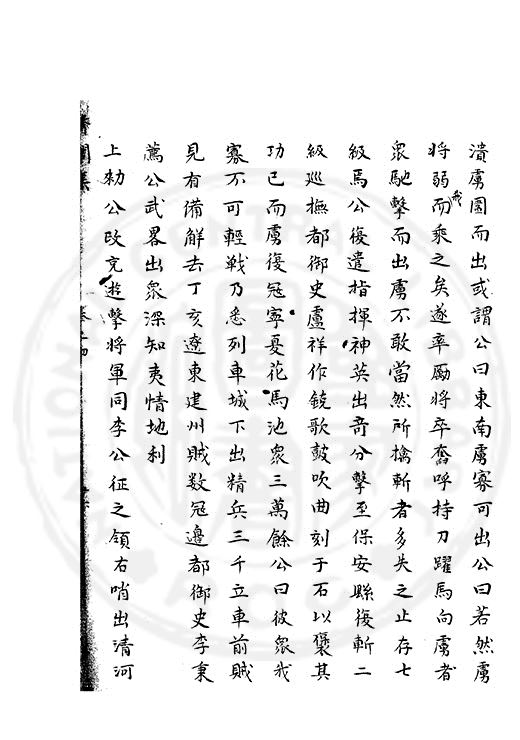 潰虜圍而出或謂公曰東南虜寡可出公曰若然虜
將弱我而乘之矣遂率勵將卒奮呼持刀躍馬向虜者
眾馳擊而出虜不敢當然所擒斬者多失之止存七
級馬公復遣指揮神英出奇分擊至保安縣復斬二
級巡撫都御史盧祥作鐃歌鼓吹曲刻于石以褒其
功已而虜復寇寧夏花馬池眾三萬餘公曰彼眾我
寡不可輕戰乃悉列車城下出精兵三千立車前賊
見有備解去丁亥遼東建州賊数寇邊都御史李秉
薦公武畧出眾深知夷情地利
上勑公改充遊擊將軍同李公征之領右哨出清河